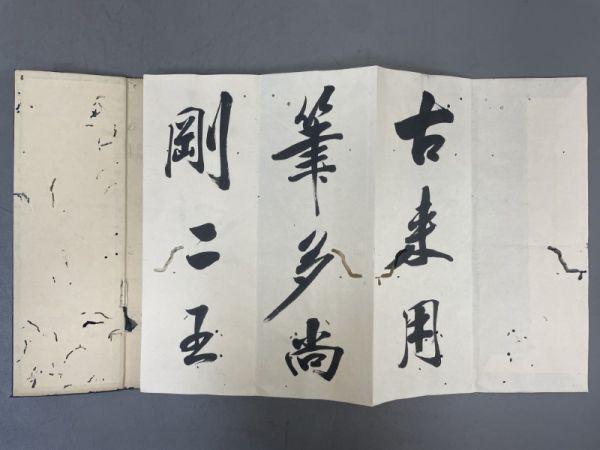 古来用
筆多尚
剛二王